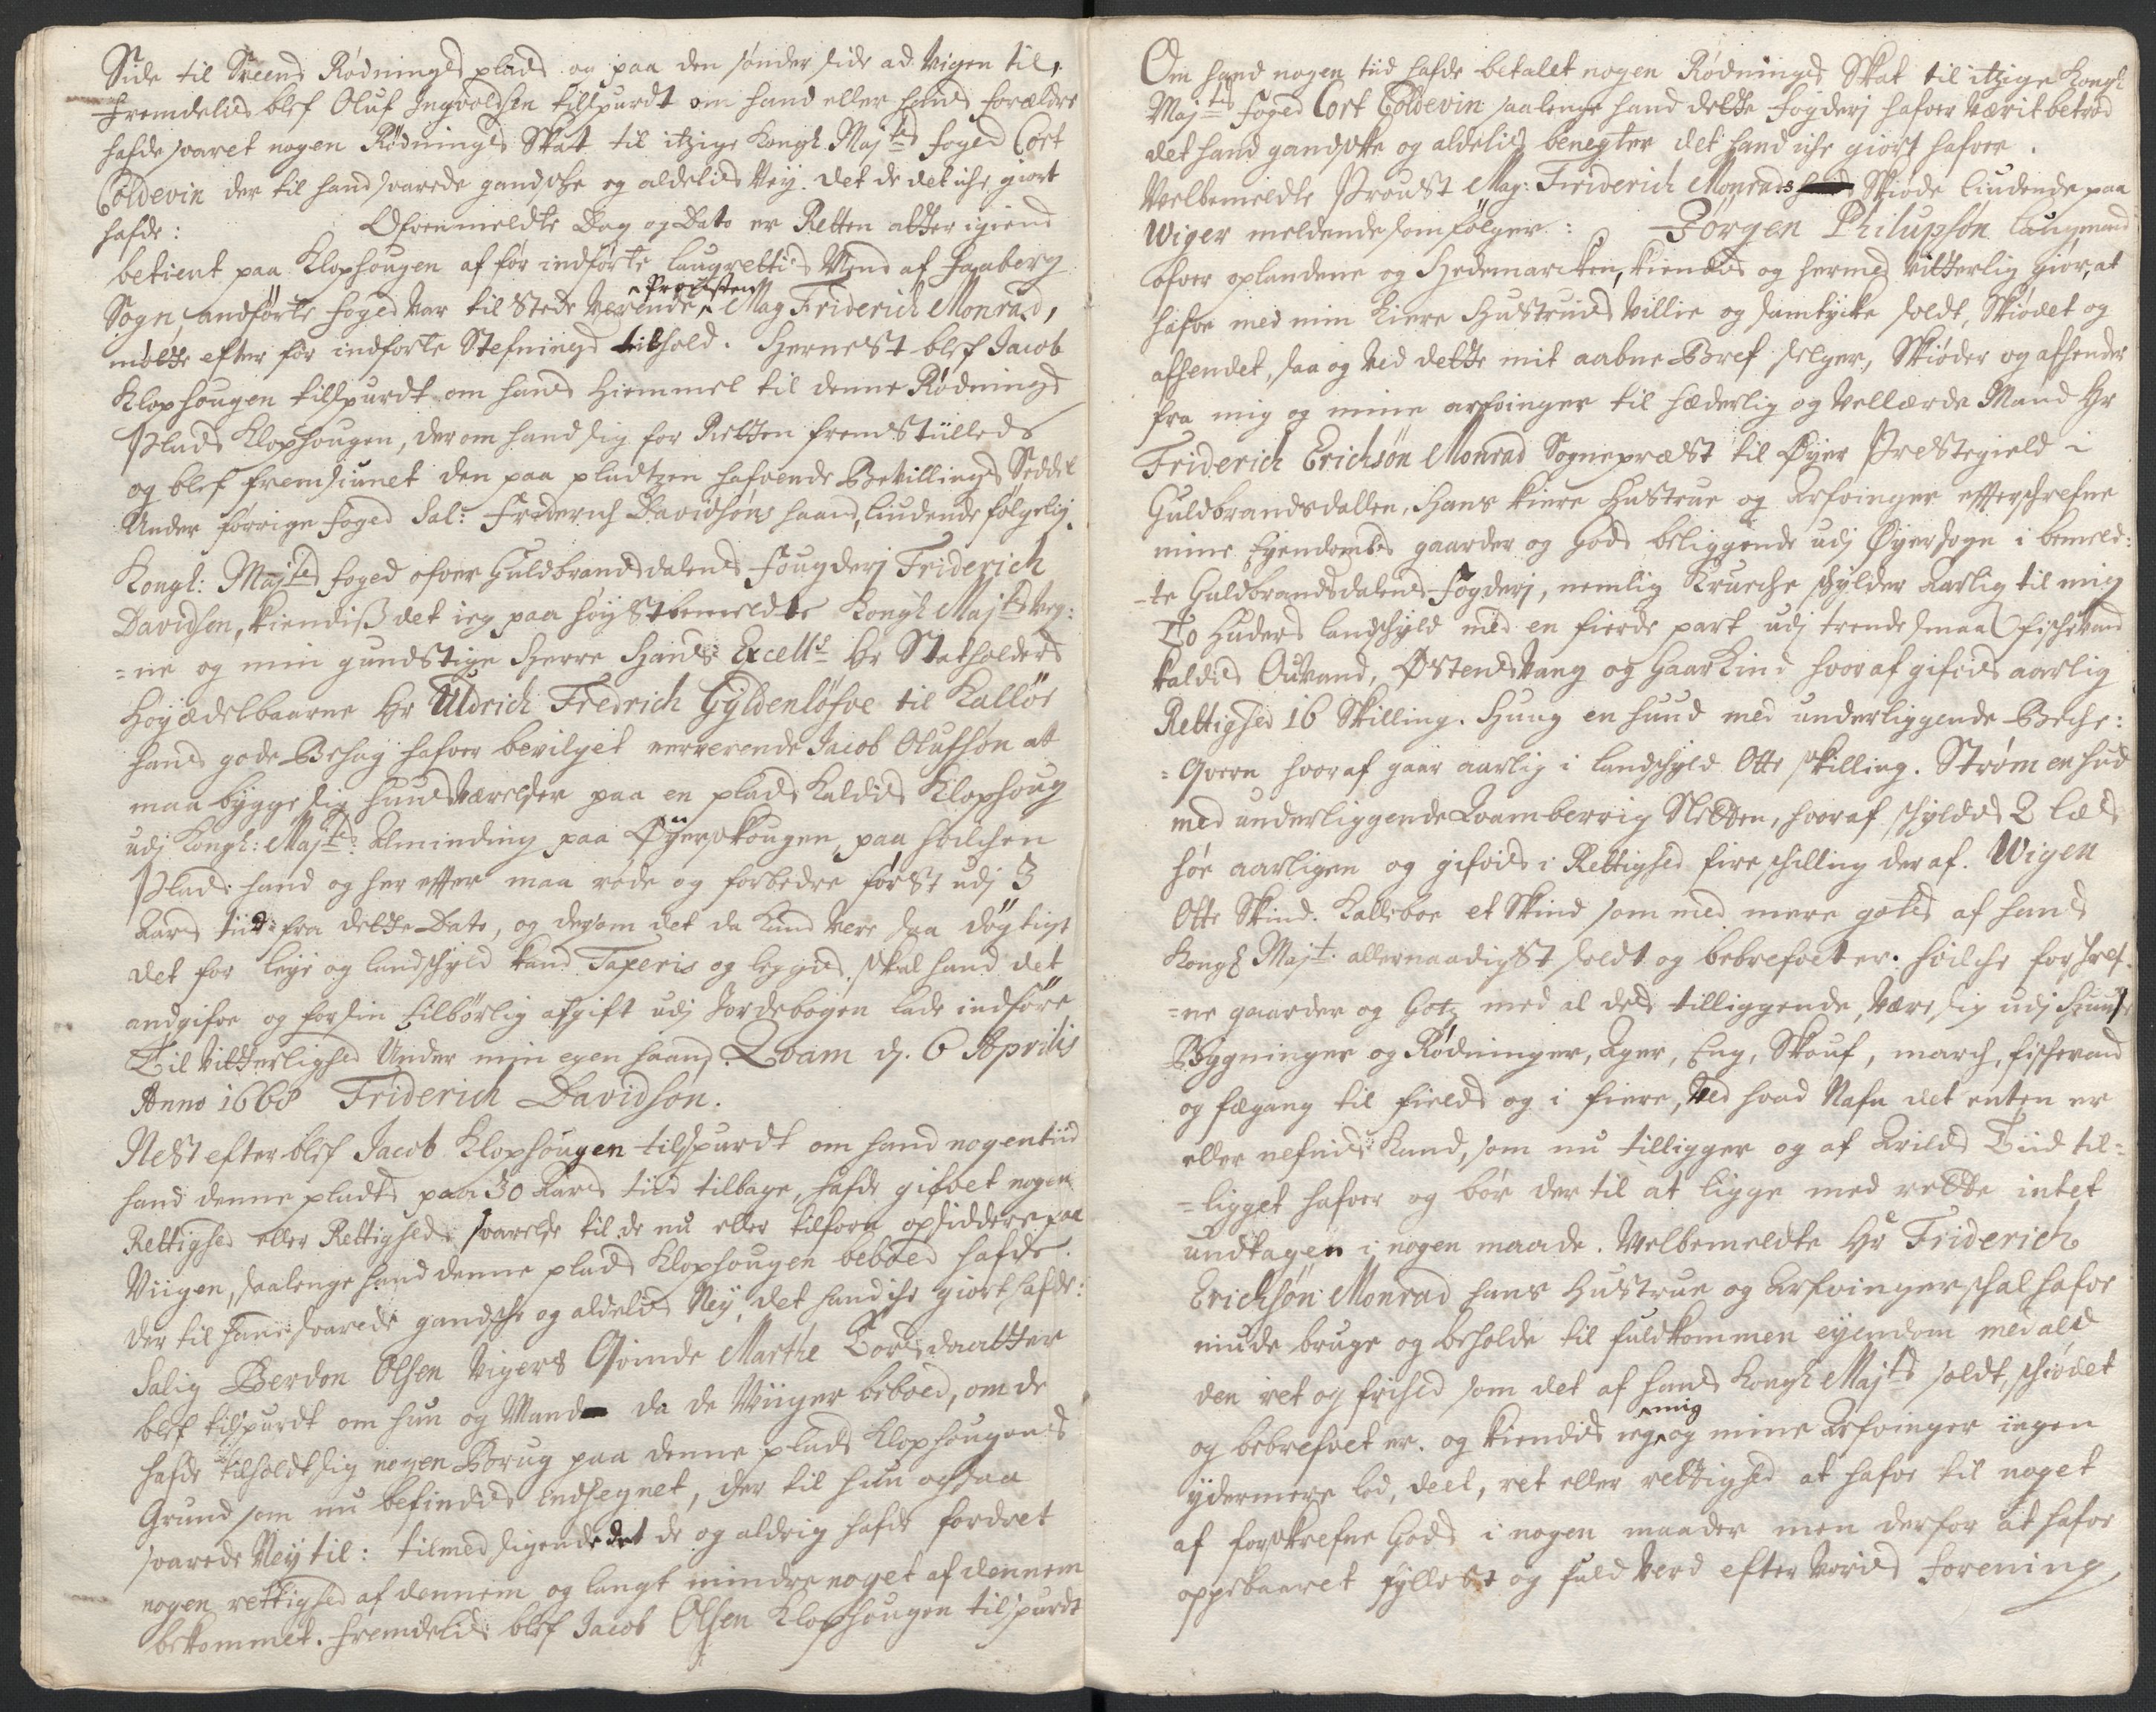 Side til Sveens Rødnings plads og paa den sønder side ad Vigen til,
Fremdelis blef Oluf Ingvoldsen tillspurdt om hand eller hans forældre
hafde svaret nogen Rødnings Skat til itzige Kongl Majts foged Cort
Coldevin der til hand svarede gandske og aldelis Ney det de det iche giort
hafde: Ofvenmeldte Dag og Dato er Retten atter igiend
betient paa Klophougen af før indførte laugrettis Mend af Faaberg
Sogn, andførte foged Var tilstede Verende ^Profvsten^ Mag Friderich Monrad,
mötte efter før indførte Stefnings tilhold. Hernest blef Jacob
Klophougen tillspurdt om hans Hiemmel til denne Rødnings
Plads Klophougen, der om hand sig for Retten fremstilleds
og blef fremsiunet den paa pladtzen hafvende Bevillings Seddel
Under forrige foged Sal: Frederich Davidsøns haand, liudende følgelig.
Kongl: Majts foged ofver Guldbrandsdalens Fougderj Friderich
Davidsen, kiendiß det ieg paa høyst bemeldte Kongl Majts veg:
=ne og min gundstige Herre Hans Excells Hr Statholders
Høyædelbaarne Hr Uldrich Fredrich Gyldenløfve til Kalløe
hans gode Behag hafver bevilget nerverende Jacob Olufsøn at
maa bygge sig huusværelser paa en plads kaldis Klophoug
udj Kongl: Majts: Alminding paa Øyerskougen, paa hvilchen
Plads hand og her effter maa røde og forbedre først udj 3
Aars tiid fra dette Dato, og dersom det da kand Vere saa døgtigt
det for leye og landschyld kand Taxeris og leggis, skal hand det
andgifve og for sin tilbörlig afgift udj Jordebogen lade indføre,
Til Vitterlighed Under min egen haand Qvam d. 6 Aprilis
Anno 1668 Friderich Davidsøn.
Nest efter blef Jacob Klophougen tilspurdt om hand nogen tiid
hand denne plads paa 30 Aars tiid tilbage, hafde gifvet nogen
Rettighed eller Rettigheds svarelse til de nu eller tilforn opsiddere paa
Viigen, saalenge hand denne plads Klophougen beboed hafde.
der til hand svarede gandsche og aldelis Ney, det hand iche giort hafde:
Salig Berdon Olsen Vigers Qvinde Marthe Tordsdaatter
blef tilspurdt om hun og Mand da de Viiger beboed, om de
hafde tilholdt sig nogen Brug paa denne plads Klophougens
Grund som nu befindis indhegnet, der til hun ochsaa
svarede Ney til: tilmed sigende det de og aldrig hafde fordret
nogen rettighed af dennem og langt mindre noget af dennem
bekommet. fremdelis blef Jacob Olsen Klophougen tilspurdt
Om hand nogen tiid hafde betalt nogen Rødnings Skat til itzige Kongl
Majts foged Cort Coldevin saalenge hand dette fogderj hafver Værit betrod
det hand gandske og aldelis benegter det hand iche giort hafver.
Velbemeldte Proust Mag: Friderich Monrads Skiøde liudende paa
Wiger meldende som følger: Jørgen Philupsøn laugmand
ofver oplandene og Hedemarcken, kiendis og hermed Vitterlig giør, at
hafve med min kiere Hustruis villie og samtycke soldt, Skiødet og
afhendet, saa og Ved dette mit aabne Bref selger, Skiøder og afhender
fra mig og mine arfvinger til Hæderlig og Vellærde Mand Hr
Friderich Erichsøn Monrad Sognepræst til Øyer Prestegield i
Guldbrandsdallen, Hans kiere Hustrue og Arfvinger efterschrefne
mine Eyendombs gaarder og Gods beliggende udj Øyer sogn i bemeld:
-te Guldbrandsdalens Fogderj, nemlig Kruche schylder Aarlig til mig
To Huders landschyld med en fierde part udj trende smaa fischevand
kaldis Ouvand, Østensvang og Haarkind hvor af gifvis aarlig
Rettighed 16 Skilling. Hung en huud med underliggende Beche:
=Qvern hvor af gaar aarlig i landschyld Otte skilling. Strøm en hud
med underliggende Qvamberrig Sletten, hvor af schyldis 2 læs
høe aarligen og gifvis i Rettighed fire schilling der af. Wigen
Otte Skind. Kalleboe et Skind som med mere gods af hans
Kongl Majt. allernaadigst soldt og bebrefvet er. hvilche forschref-
=ne gaarder og Gotz med al des tilliggende, være sig udj Huuse
Bygninger og Rødninger, Ager, Eng, Skouf, march, fischevand
og fægang til fields og i fiere, Ved hvad Nafn det enten er
eller nefnis kand, som nu tilligger og af Arilds Tiid til-
=ligget hafver og bör der til at ligge med rette intet
undtagen i nogen maade. Velbemeldte Hr Friderich
Erichsøn Monrad hans Hustrue og Arfvinger schal hafve
niude bruge og beholde til fuldkommen eyendom med ald
den ret og frihed som det af hans Kongl Majts soldt, schiødet
og bebrefvet er. og kiendis ieg ^mig^ og mine Arfvinger ingen
ydermere lod, deel, ret eller rettighed at hafve til noget
af forskrefne Gods i nogen maader men derfor at hafve
oppebaaret fyllest og fuld Verd efter voris forening